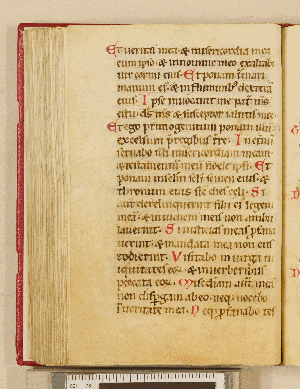 Et veritas mea & misericordia mea
cum ipso & in nomine meo exaltabi
tur cornu eius. Et ponam in mari
manum ei⁹ & in fluminib⁹ dextera
eius. Ipse invocavit me pat̄ m̄s
es tu d̄s m̄s & susceptor salutis mee
Et ego primogenitum ponam illū
excelsum p̄ regibus tr̄e. In etn̄ū
servabo illi misericordiam meam
& testamentum meū fidele ipsi. Et
ponam in sclm̄ scli semen eius &
thronum eius sic̄ dies celi. Si
aut̄ dereliquerint filii ei⁹ legem
meā & in iudiciis meis non ambu
laverint. Si iusticias meas p̄fana
verint & mandata mea non cus
todierint. Visitabo in virga in
iquitates eoꝝ & in verberibus
peccata eoꝝ. Mīsc̄diam aut̄ meā
non disp̄gam ab eo. neqꝫ nocebo
in veritate mea. Neqꝫ p̄fanabo tes